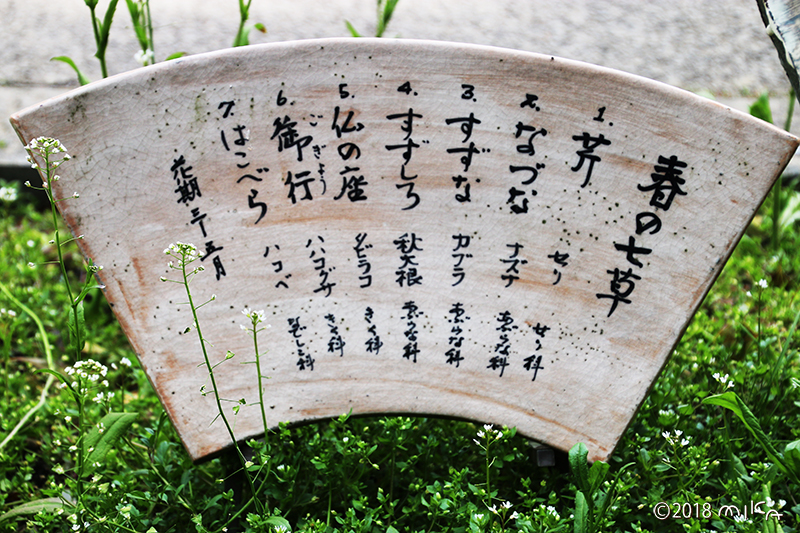 春の七草
1. 芹 セリ せり科
2. なづな ナズナ あぶらな科
3. すずな カブラ あぶらな科
4. すずしろ 秋大根 あぶらな科
5. 仏の座 タビラコ きく科
6. 御行 ごぎょう ハハコグサ きく科
7. はこべら ハコベ なでしこ科
花期 三〜五月
©2018 mika